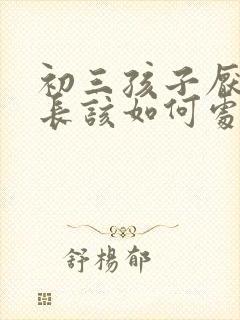 初三孩子厌
长该如何处
舒杨郁